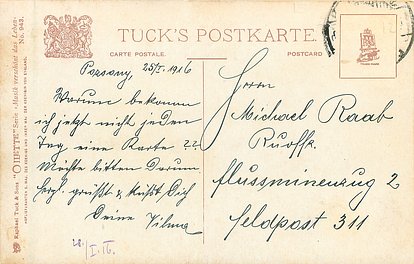 TUCK'S POSTKARTE.
CARTE POSTALE.
POSTCARD
Raphael Tuck & Sons' "OILETTE" Serie „Musik verschönt das Leben“
No. 943.
Pozsony 25/I. 1916
Warum bekomm
ich jetzt nicht jeden
Tag eine Karte ??
Möchte bitten Darum
herzl. grüßt & küßt Dich
Deine Vilma
Herrn
Michael Raab
Ruoffk.
Flussminenzug 2
Feldpost 311
28. I. 16.